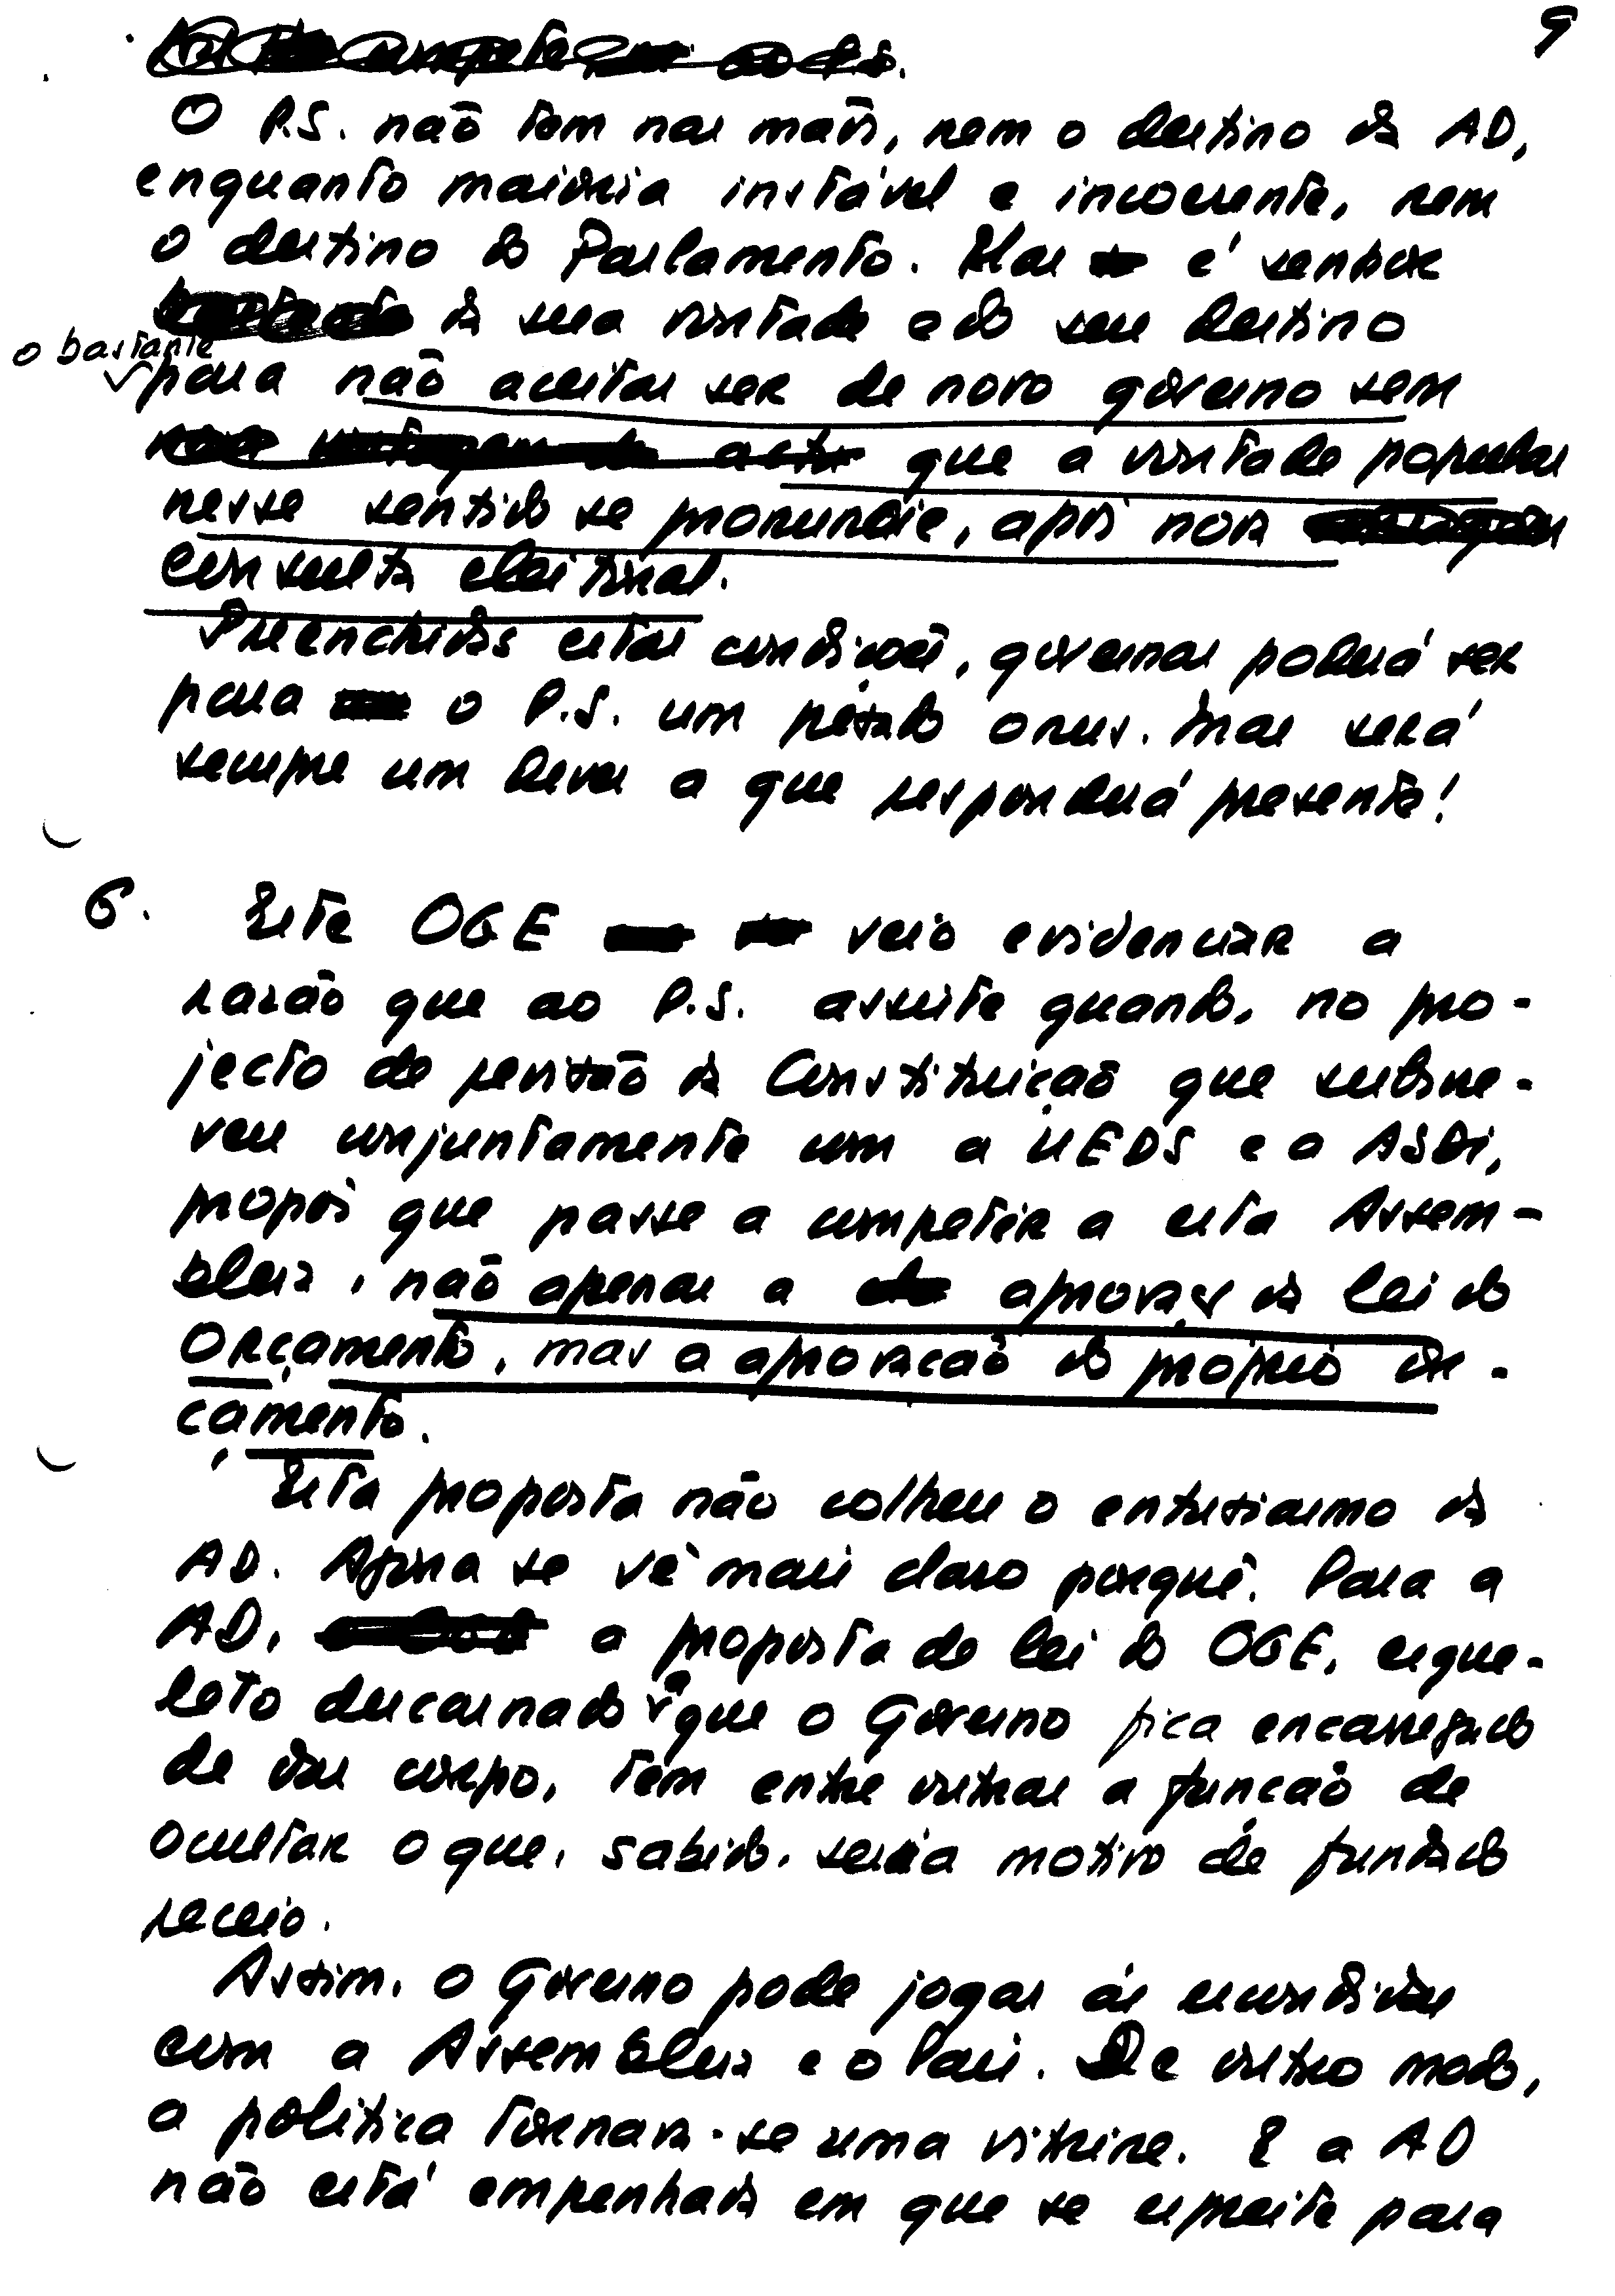 9
O P.S. não tem nas mãos, nem o destino da AD,
enquanto maioria instável e incoerente, nem
o destino do Parlamento. Mas é senhor
da sua vontade e do seu destino
o bastante
para não aceitar ser de novo governo sem
que a vontade popular
nesse sentido se pronuncie, após nova
consulta eleitoral.
Preenchidas estas condições, governar poderá ser
para o P.S. um pesado onus. Mas será
sempre um dever a que responderá presente!
6. Este OGE veio evidenciar a
razão que ao P.S. assiste quando, no pro-
jecto de revisão da Constituição que subscre-
veu conjuntamente com a UEDS e a ASDI,
propôs que passe a competir a esta Assem-
bleia, não apenas a aprovação da lei do
Orçamento, mas a aprovação do próprio Or-
çamento.
Esta proposta não colheu o entusiasmo da
AD. Agora se vê mais claro porquê. Para a
AD, a proposta de lei do OGE, esque-
leto descarnado a que o Governo fica encarregado
de dar corpo, tem entre outras a função de
ocultar o que, sabido, seria motivo de fundado
receio.
Assim, o Governo pode jogar às escondidas
com a Assembleia e o País. De outro modo,
a política tornava-se uma vitrine. E a AD
não está empenhada em que se espreite para